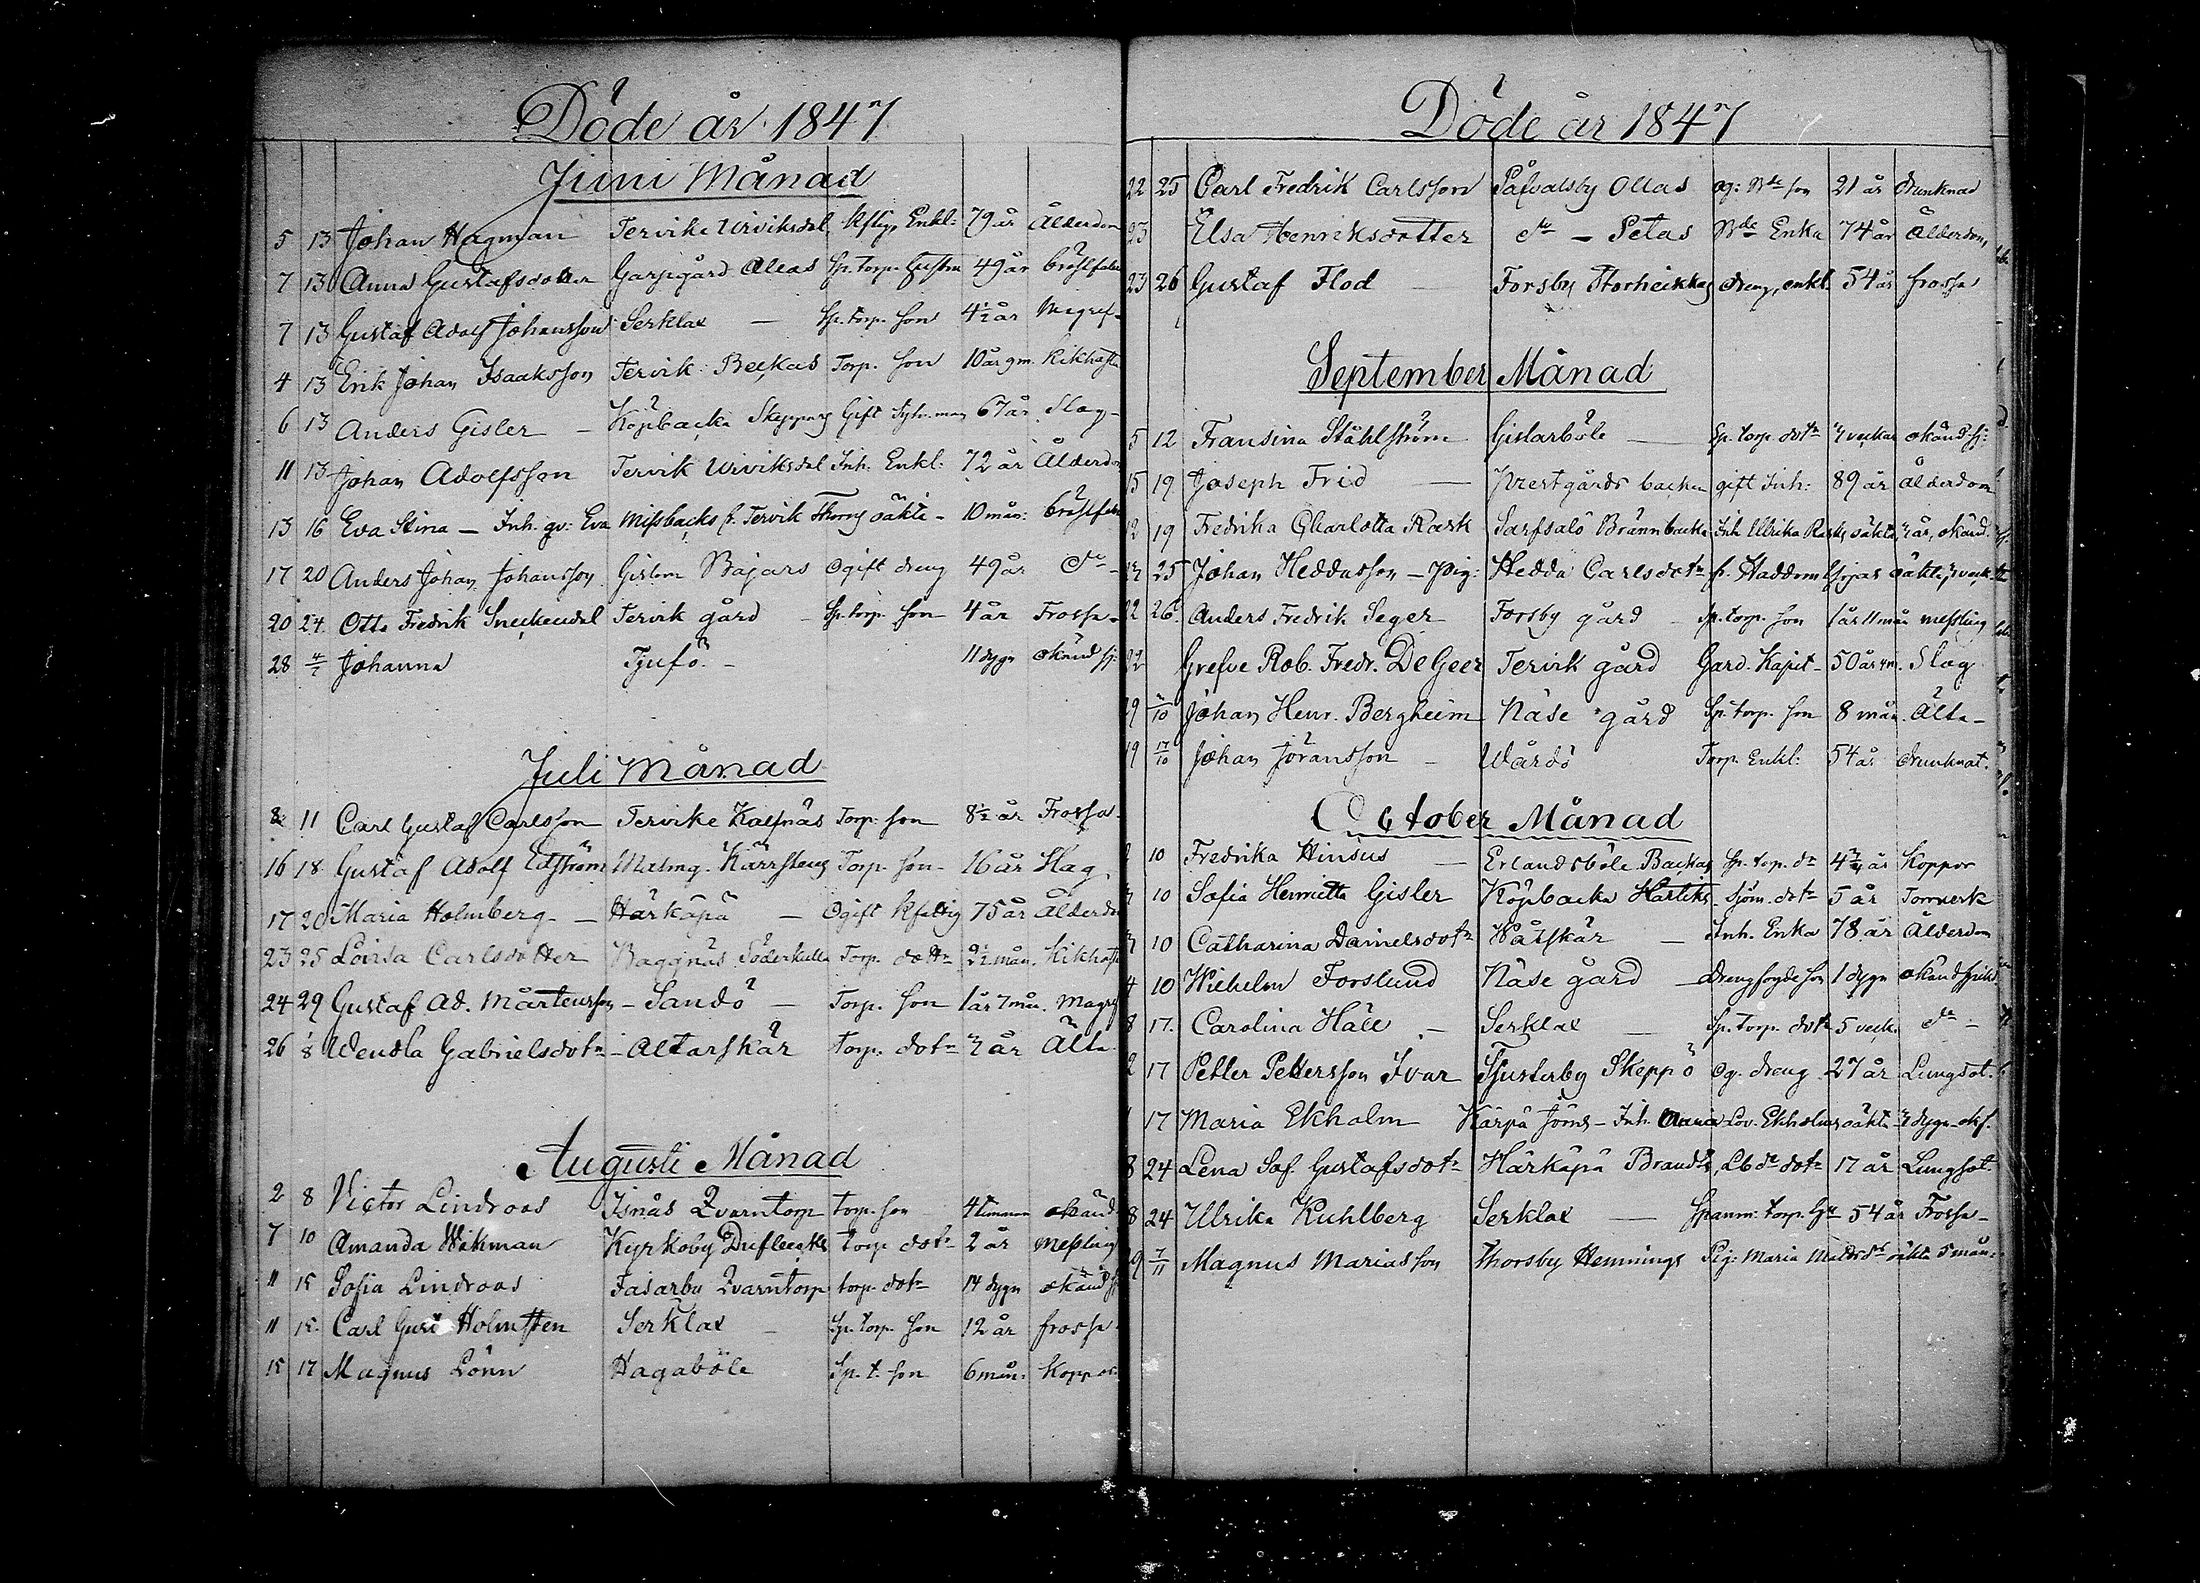 Döde år 1847
Juni Månad
5 13 Johan Hagman Tervike Urviksdal Kftg, Enkl: 79 år Ålderdom
7 13 Anna Gustafsdotter Garpgård Ollas Sp. torp. Hustru 49 år bröstfeber
7 13 Gustaf Adolf Johansson Serklax — Sp. torp. son 4½ år Magref-
4 13 Erik Johan Isaaksson Tervik Beckas Torp. son 10 år 9 m. Kikhosta
6 13 Anders Gisler — Köpbacka Skeppars Gift 67 år Slag-
11 13 Johan Adolfsson Tervik Urviksdal Inh. Enkl: 72 år Ålderdom
13 16 Eva Stina — Inh. qv: Eva Missbacks fr. Tervik Thorns oäkta - 10 mån: bröstfeber
17 20 Anders Johan Johansson Gislom Bajars Ogift dreng 49 år do-
20 24. Otto Fredrik Sneckendal Tervik gård - Sp. torp. son 4 år Frossa-
28 4/7 Johanna Tjufö. - 11 dygn okänd sj:
Juli Månad
8 11 Carl Gustaf Carlsson Tervike Kalfnäs Torp. son 8½ år Frossa-
16 18 Gustaf Adolf Edström Malmg. Kärrstens Torp. son - 16 år Slag.
17 20 Maria Holmberg - — Härkäpä — Ogift Kfattig 75 år Ålderdom
23 25 Lovisa Carlsdotter Baggnäs Söderkulla Torp. dottr 2½ mån. Kikhosta
24 29 Gustaf Ad. Mårtensson - Sandö — Torp. son 1 år 7 mån. Magref
26 1/8 Wendla Gabrielsdotr - Altarskär Torp. dotr ½ år Älta.
Augusti Månad
2 8 Victor Lindroos Isnäs Qvarntorp torp. son 4 timmar okänd
7 10 Amanda Wikman Kyrkoby Dufleeks torp dotr 2 år Messling
11 15 Sofia Lindroos Fasarby Qvarntorp torp. dotr 14 dygn okänd sj
11 15. Carl Gust Holmsten Serklax — Sp. torp. son 12 år frossa-
15 17 Magnus Lönn Hagaböle Sp. t. son 6 mån. Koppor
Döde år 1847
22 25 Carl Fredrik Carlsson Påfvalsby Ollas og: Bde son 21 år drunknad
23 Elsa Henriksdotter do — Petas Bde Enka 74 år Ålderdom,
23 26 Gustaf Flod — Forsby Storheikkas dreng, enkl. 54 år frossa
September Månad
5 12 Fransina Ståhlström Gislarböle — Sp. torp. dotr 7 veckor okänd sj:
15 19 Joseph Frid — Prestgårds backen gift Inh: 89 år ålderdom
12 19 Fredrika Charlotta Rask Sarfsalö Brännbacka Inh Ulrika Rasks oäkta, ½ år, okänd.
25 Johan Heddasson — pig: Hedda Carlsdotr fr. Haddom oäkta, 7 veck.
22 26. Anders Fredrik Seger Forsby gård — Sp. torp. son 1 år 11 mån messling
22 Grefve Rob. Fredr. De Geer Tervik gård Gard. Kapit - 50 år 4 m. Slag
29 10 Johan Henr. Bergheim Näse gård Sp. torp. son 8 mån. Älta-
19 17/10 Johan Göransson - Wårdö Torp. Enkl: 54 år drunknat.
October Månad
2 10 Fredrika Hinsus — Erlandsböle Backas Sp. torp. dr 4¾ år Koppor
10 Sofia Henrietta Gisler Köpbacka Hartiks. Sjöm. dotr 5 år Torrverk
10 Catharina Danielsdotr Håtskär — Inh. Enka 78 år Ålderdom
4 10 Wilhelm Forslund Näse gård — drengfogde son 1 dygn okänd sjukd
8 17. Carolina Häll - Serklax — Sp. torp. dotr 5 veck. do —
2 17 Petter Pettersson Ivar Tjusterby Skeppö og. dreng 27 år Lungsot.
17 Maria Ekholm Kärpä Jöns - Inh. Maria Lov. Ekholms oäkta 7 dygn - oks.
8 24 Lena Sof. Gustafsdotr Härkäpä Brands, Lbde dotr 17 år Lungsot.
8 24 Ulrika Kuhlberg Serklax — Spanm. torp. Hu 54 år Frossa-
29 7/11 Magnus Mariasson Thorsby Hemmings Pig: Maria Mattsdr oäkta 5 mån: